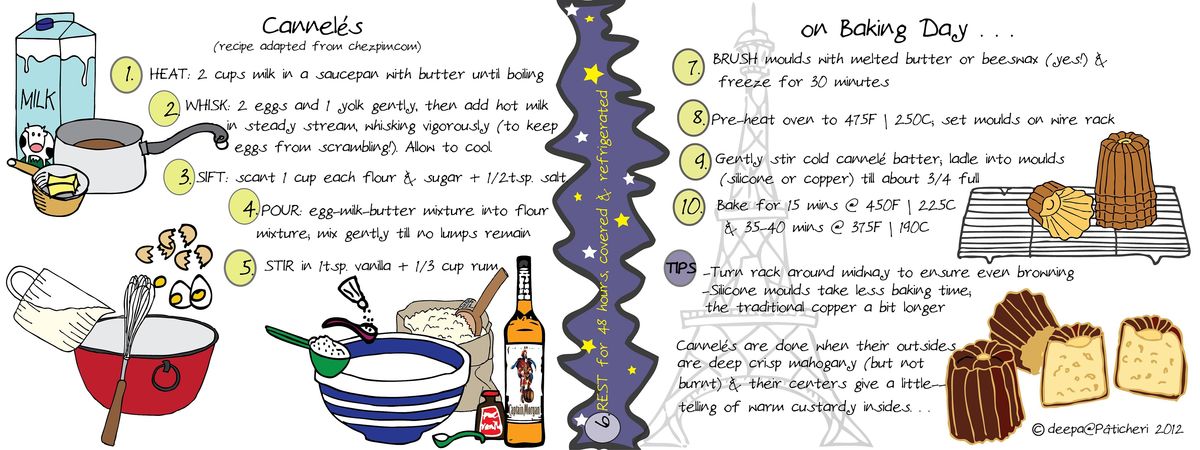 Cannelés
(recipe adapted from chezpim.com)
MILK
1. HEAT: 2 cups milk in a saucepan with butter until boiling
2. WHISK: 2 eggs and 1 yolk gently, then add hot milk
in steady stream, whisking vigorously (to keep
eggs from scrambling!). Allow to cool.
3. SIFT: scant 1 cup each flour & sugar + 1/2tsp. salt
4. POUR: egg-milk-butter mixture into flour
mixture; mix gently till no lumps remain
5. STIR in 1tsp. vanilla + 1/3 cup rum
Captain Morgan
6. REST for 48 hours, covered & refrigerated
on Baking Day . . .
7. BRUSH moulds with melted butter or beeswax (yes!) &
freeze for 30 minutes
8. Pre-heat oven to 475F | 250C; set moulds on wire rack
9. Gently stir cold cannelé batter; ladle into moulds
(silicone or copper) till about 3/4 full
10. Bake for 15 mins @ 450F | 225C
& 35-40 mins @ 375F | 190C
TIPS -Turn rack around midway to ensure even browning
-Silicone moulds take less baking time;
the traditional copper a bit longer
Cannelés are done when their outsides
are deep crisp mahogany (but not
burnt) & their centers give a little--
telling of warm custardy insides. . .
© deepa@Pâticheri 2012